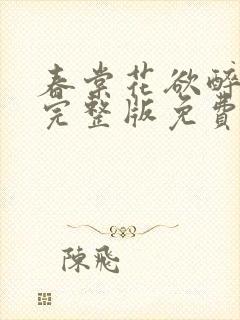 春棠花欲醉
完整版免費
陳飛